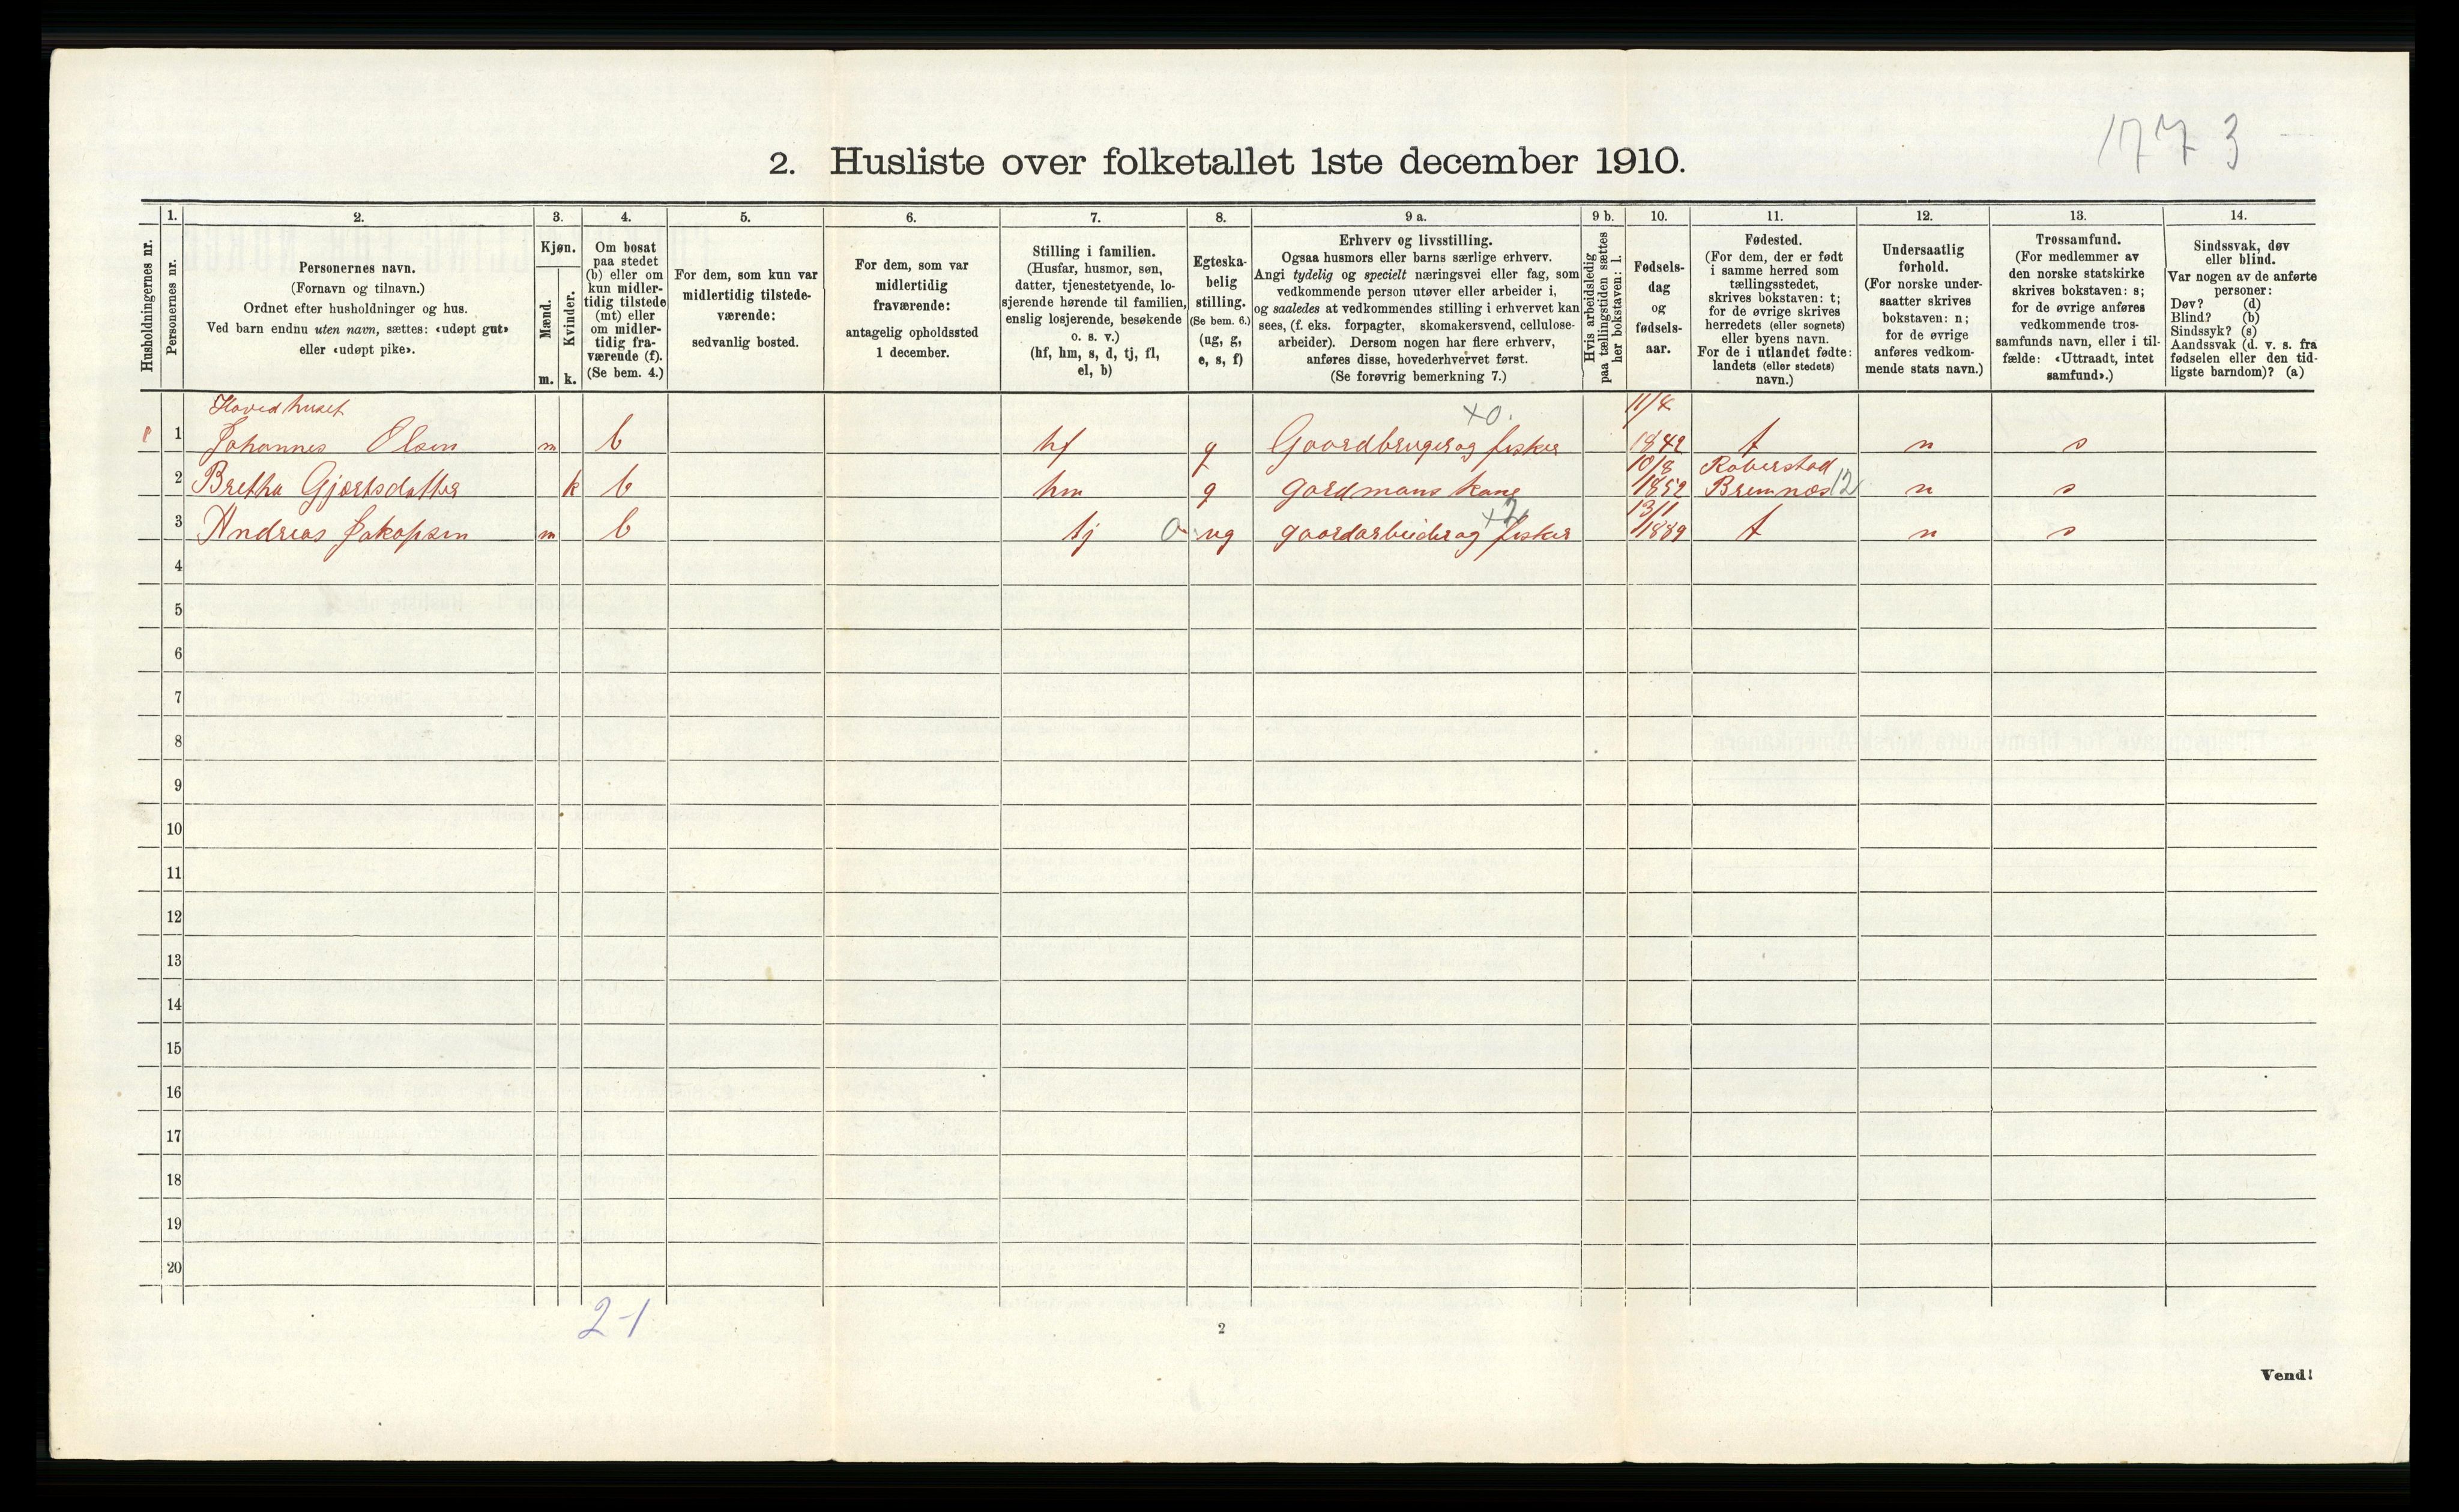 1773
2. Husliste over folketallet 1ste december 1910.
Husholdningernes nr.
1.
Personernes nr.
2.
Personernes navn.
(Fornavn og tilnavn.)
Ordnet efter husholdninger og hus.
Ved barn endnu uten navn, sættes: «udøpt gut»
eller «udøpt pike».
3.
Kjøn.
Mænd.
Kvinder.
m. k.
4.
Om bosat
paa stedet
(b) eller om
kun midler-
tidig tilstede
(mt) eller
om midler-
tidig fra-
værende (f).
(Se bem. 4.)
5.
For dem, som kun var
midlertidig tilstede-
værende:
sedvanlig bosted.
6.
For dem, som var
midlertidig
fraværende:
antagelig opholdssted
1 december.
7.
Stilling i familien.
(Husfar, husmor, søn,
datter, tjenestetyende, lo-
sjerende hørende til familien,
enslig losjerende, besøkende
o. s. v.)
(hf, hm, s, d, tj, fl,
el, b)
8.
Egteska-
belig
stilling.
(Se bem. 6.)
(ug, g,
e, s, f)
9 a.
Erhverv og livsstilling.
Ogsaa husmors eller barns særlige erhverv.
Angi tydelig og specielt næringsvei eller fag, som
vedkommende person utøver eller arbeider i,
og saaledes at vedkommendes stilling i erhvervet kan
sees, (f. eks. forpagter, skomakersvend, cellulose-
arbeider). Dersom nogen har flere erhverv,
anføres disse, hovederhvervet først.
(Se forøvrig bemerkning 7.)
9 b.
Hvis arbeidsledig
paa tællingstiden sættes
her bokstaven: l.
10.
Fødsels-
dag
og
fødsels-
aar.
11.
Fødested.
(For dem, der er født
i samme herred som
tællingsstedet,
skrives bokstaven: t;
for de øvrige skrives
herredets (eller sognets)
eller byens navn.
For de i utlandet fødte:
landets (eller stedets)
navn.)
12.
Undersaatlig
forhold.
(For norske under-
saatter skrives
bokstaven: n;
for de øvrige
anføres vedkom-
mende stats navn.)
13.
Trossamfund.
(For medlemmer av
den norske statskirke
skrives bokstaven: s;
for de øvrige anføres
vedkommende tros-
samfunds navn, eller i til-
fælde: «Uttraadt, intet
samfund».)
14.
Sindssvak, døv
eller blind.
Var nogen av de anførte
personer:
Døv? (d)
Blind? (b)
Sindssyk? (s)
Aandssvak (d. v. s. fra
fødselen eller den tid-
ligste barndom)? (a)
Hovedhuset x0. 11/4
1 Johannes Olsen m b hf g Gaardbruger og fisker 1842 t n s
10/8 Roverstad
2 Bretha Gjærtsdatter k b hm g gardmans kone 1852 Bremnæs 12 n s
x2 13/11
3 Andreas Jakopsen m b tj 0 ug gaardarbeider og fisker 1889 t n s
4
5
6
7
8
9
10
11
12
13
14
15
16
17
18
19
20
2-1
2
Vend!